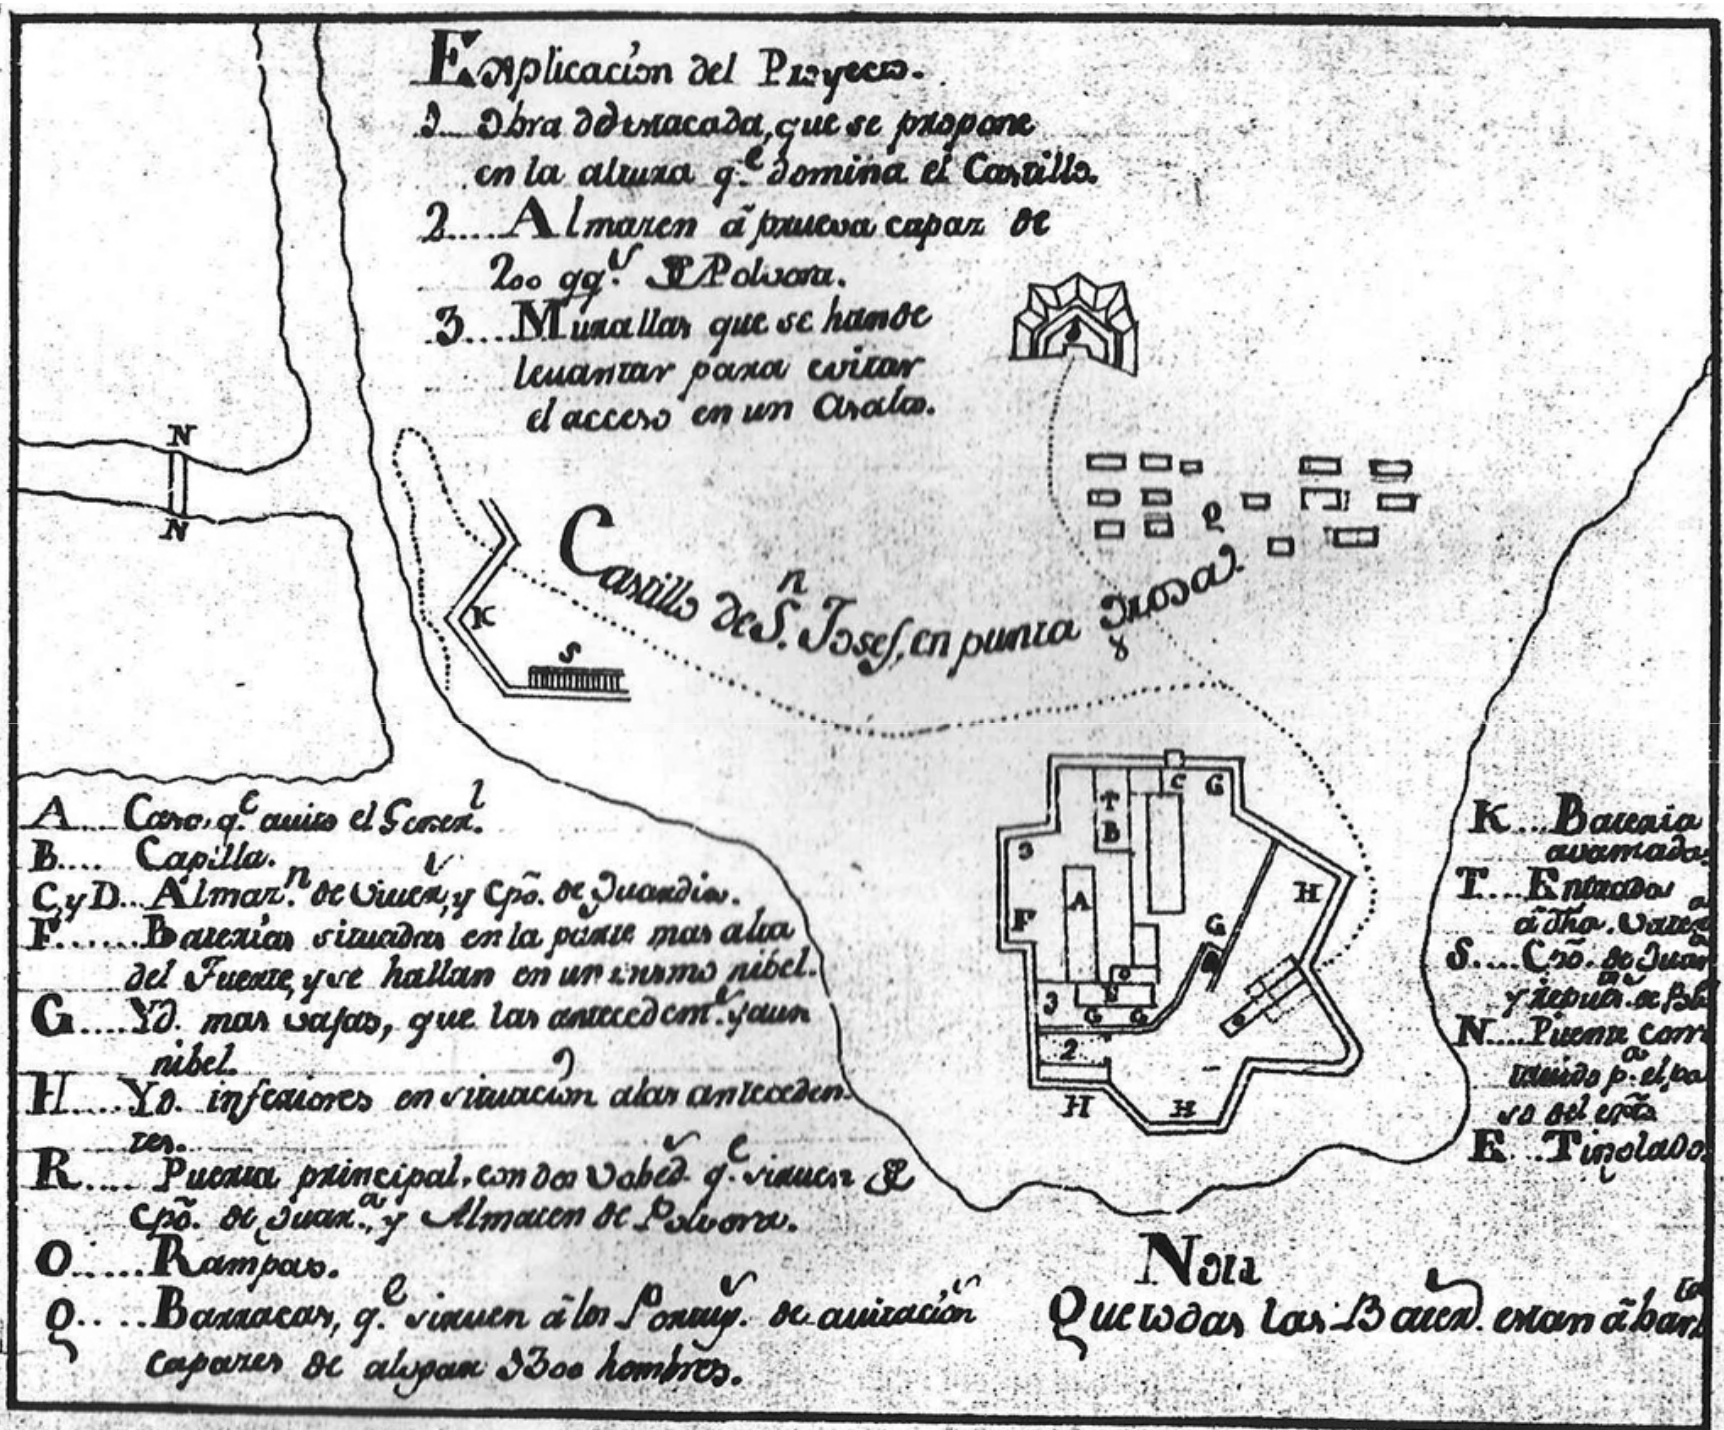 Explicación del Proyecto.
1 Obra destacada, que se propone
en la altura q.e domina el Castillo.
2 Almazen á prueva capaz de
200 qq.s Polvora.
3 Murallas que se hande
levantar para evitar
el acceso en un Asalto.
N
N
K
S
Castillo de S.n Josef, en punta Grosa
Q
T
B
C
G
3
F
A
G
H
3
G
G
2
O
H
H
A Casa, q.e avito el Gener.l
B Capilla.
C y D Almaz.n de viver.s y Cpõ. de Guardia.
F Baterias situadas en la parte mas alta
del Fuerte, y se hallan en un mismo nibel.
G Yd. mas vajas, que las antecedent.s y a un
nibel.
H Yd. inferiores en situación a las anteceden
tes.
R Puerta principal, con dos Vobed.s q.e sirven
Cpõ. de Guar.a, y Almacen de Polvora.
O Rampas.
Q Barracas, q.e sirven á los Portug.s de avitación
capazes de alojar 1300 hombres.
K Bateria
avanzada
T Entrada
á dha. Vater.a
S Cpõ. de Guar
N Puente
so del
E Tinglado
Nota
Que todas las Bater.s estan á bar